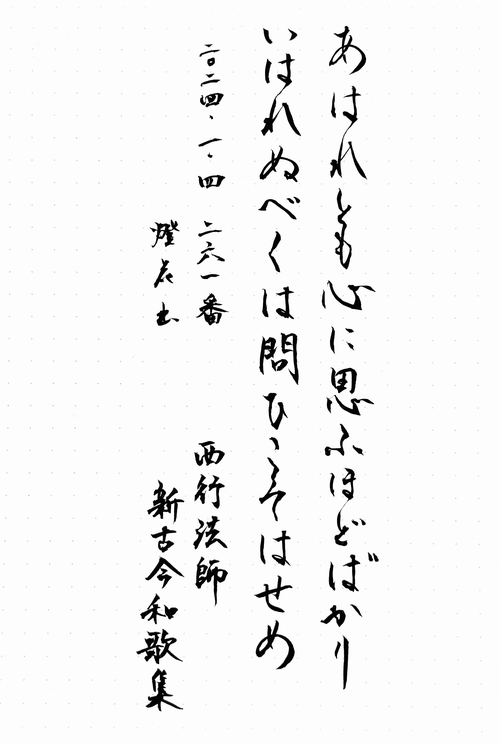 あはれとも心に思ふほどばかり
いはれぬべくは問ひこそはせめ
二〇二四、一、四 二六一番
燈花
西行法師
新古今和歌集